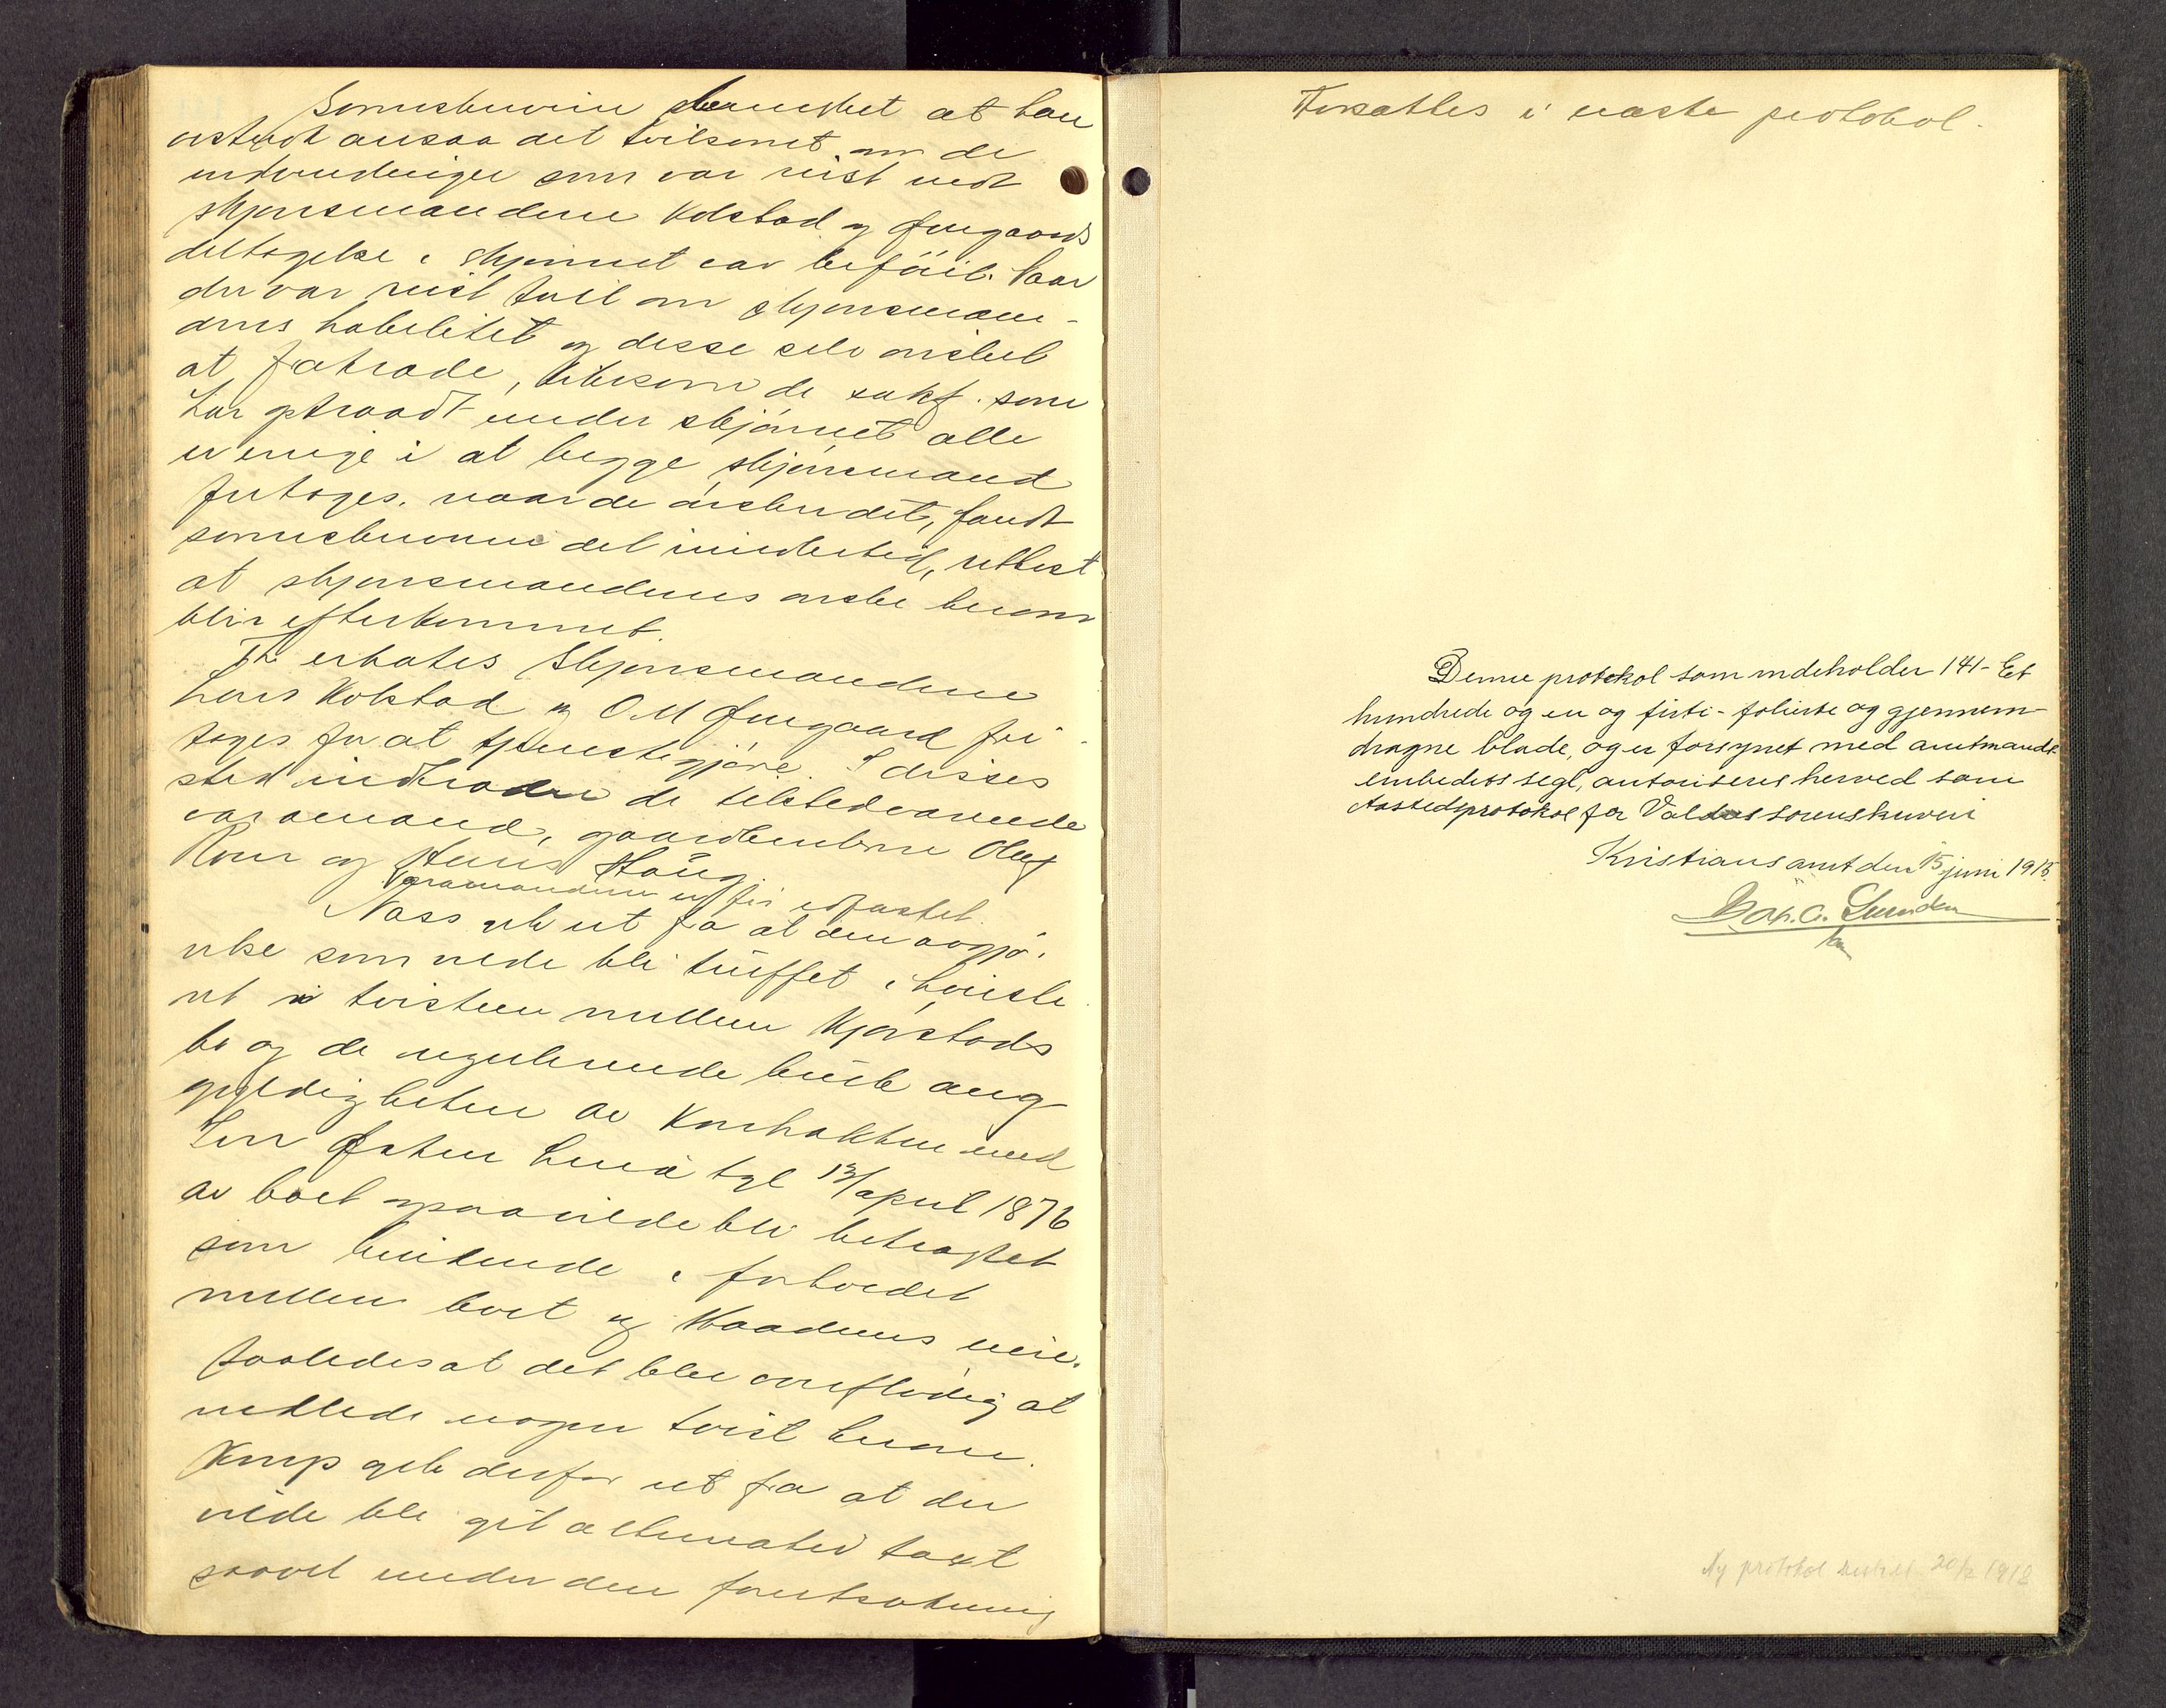 Sorenskriveren bemerket at han
vistnok ansaa det tvilsomt om de
indvendinger som var reist mot
skjønsmændene Kolstad og Furgaards
deltagelse i skjønnet var beføiet. Naar
der var reist tvil om skjønsmæn-
denes habilitet og disse selv ønsket
at fratræde, likesom de sakf. som
har optraadt under skjønnet alle
er enige i at begge skjønsmænd
fritages, naar de ønsker det, fandt
sorenskriveren det imidlertid rettest
at skjønsmændenes ønske herom
blir efterkommet.
Th. erkates Skjønsmændene
Lars Kolstad og O M Furgaard fri-
tages for at tjenestegjøre. I disses
sted indtræder de tilstedeværende
varamænd, gaardbrukerne Oluf
Rom og Hans Haug.
Varamændene er før edfæstet.
Næss gik ut fra at den avgjø-
relse som vilde bli truffet i høieste
ret i tvisten mellem Kjørstads
bo og de regulerende bruk ang
gyldigheten av kontrakten med
Iver Østen Lunå tgl 13/april 1876
av boet ogsaa vilde bli betragtet
som bindende i forholdet
mellem boet og Waadens eiere.
saaledes at det blev overflødig at
nedlede nogen tvist herom.
Kemp gik derfor ut fra at der
vilde bli git alternativ takst
saavel under den forutsætning
Forsættes i næste protokol.
Denne protokol som indeholder 141 - Et
hundrede og en og firti - folierte og gjennem-
dragne blade, og er forsynet med amtmands-
embedets segl, autoriseres herved som
Aastedsprotokol for Valdres sorenskriveri
Kristians amt den 15 juni 1915.
Ny protokol 20/2 1918